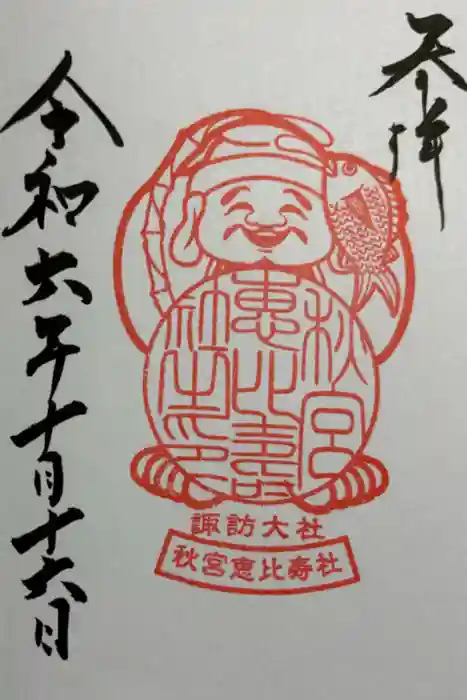 奉拝
秋宮
恵比壽
社之印
諏訪大社
秋宮恵比壽社
令和六年十月十六日